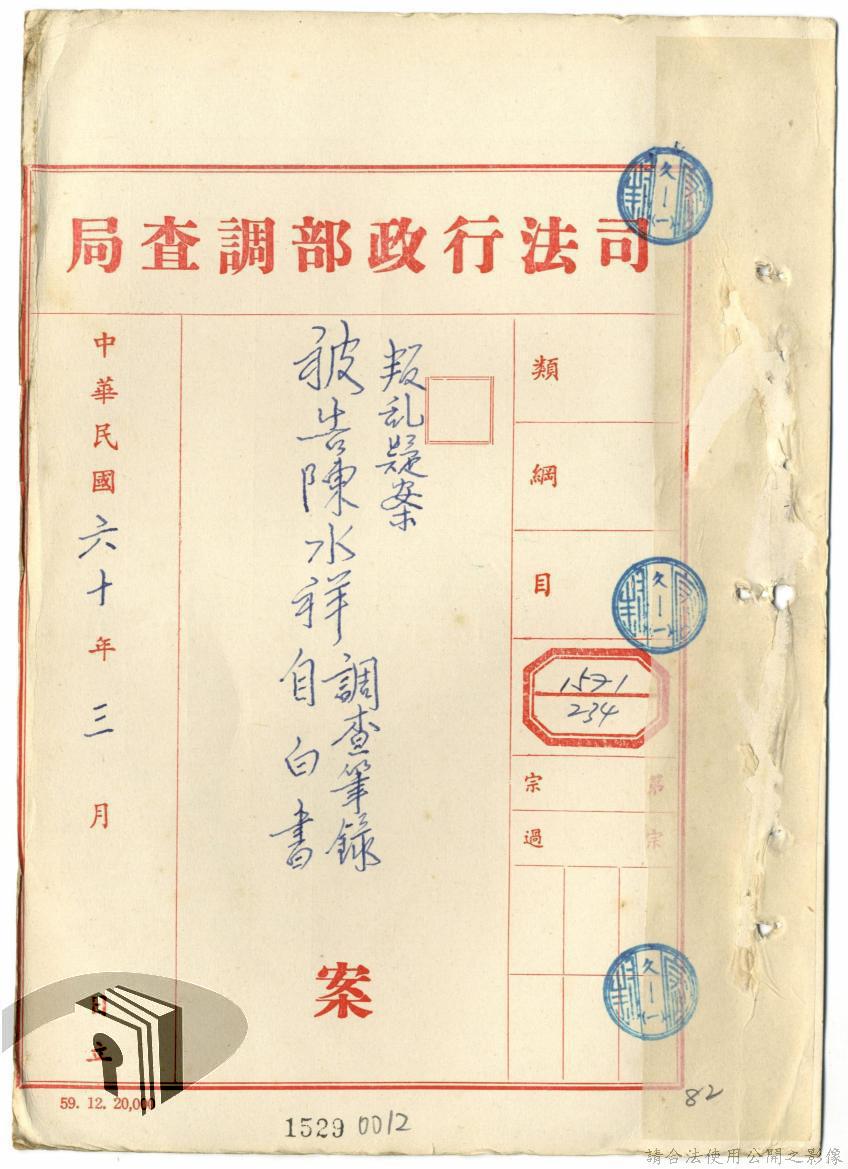 司法行政部調查局
類
綱
目
1571
234
第
宗
宗
過
叛乱疑案
被告陳水祥
調查筆錄
自白書
案
中華民國六十年三月
日立
59. 12. 20,000
1529 0012
82
久一(一)
久一(一)
久一(一)
請合法使用公開之影像